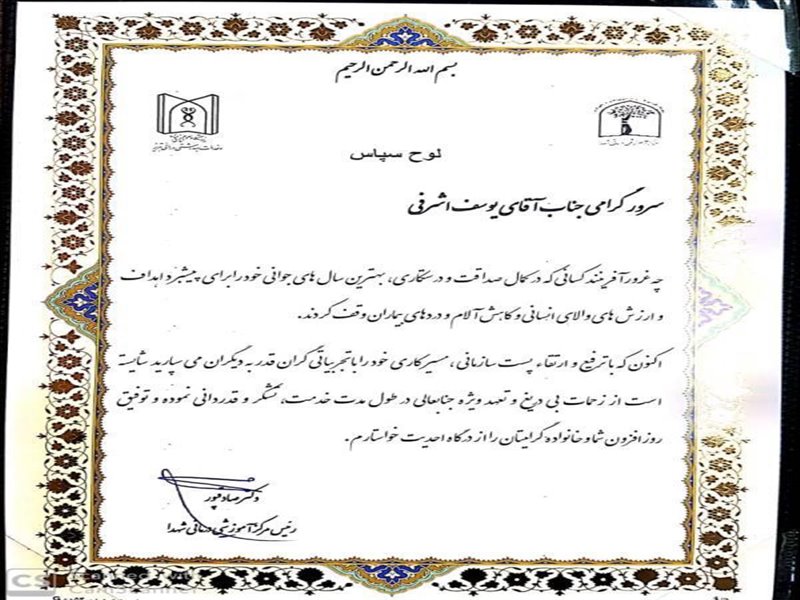 بسم الله الرحمن الرحیم
لوح سپاس
سرور گرامی جناب آقای یوسف اشرفی
چه غرور آفرینند کسانی که در کمال صداقت و درستکاری، بهترین سال های جوانی خود را برای پیشبرد اهداف
و ارزش های والای انسانی و کاهش آلام و دردهای بیماران وقف کردند.
اکنون که با ترفیع و ارتقاء پست سازمانی، مسیر کاری خود را با تجربیاتی گران قدر به دیگران می سپارید شایسته
است از زحمات بی دریغ و تعهد ویژه جنابعالی در طول مدت خدمت، تشکر و قدردانی نموده و توفیق
روز افزون شما و خانواده گرامیتان را از درگاه احدیت خواستارم.
دکتر صادقپور
رئیس مرکز آموزشی درمانی شهدا
CS CamScanner